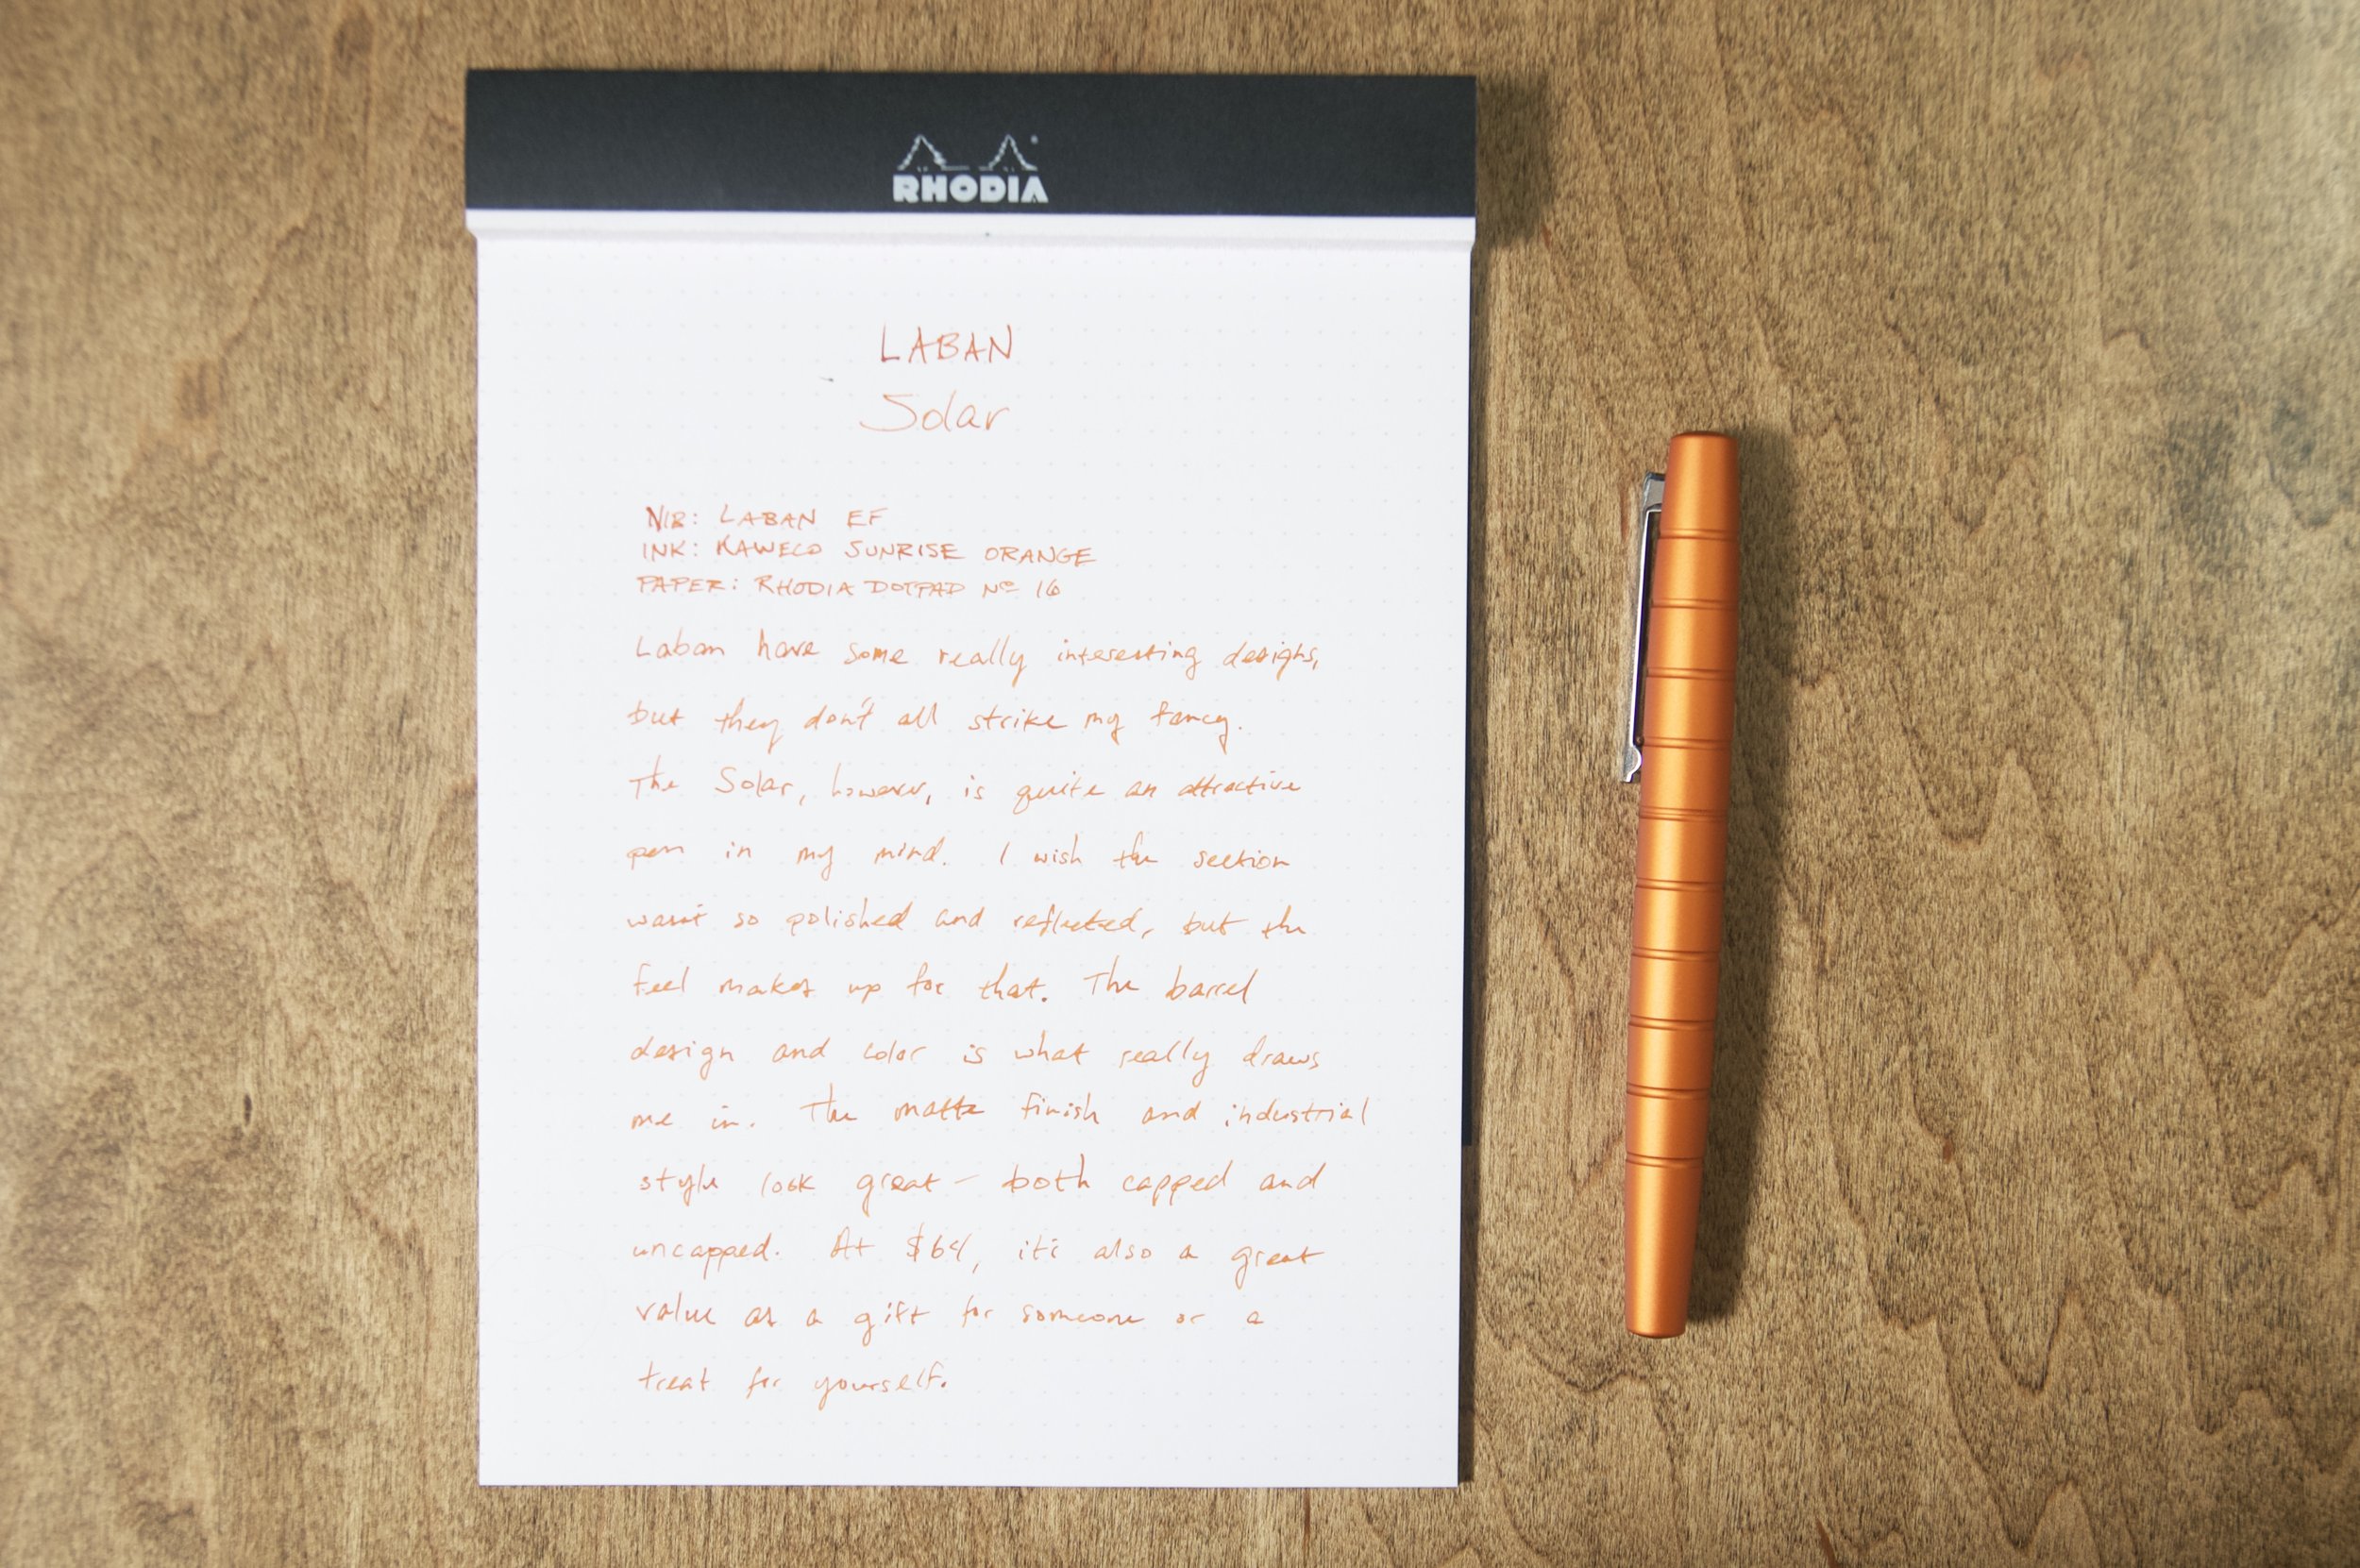 RHODIA
LABAN
Solar
NIB: LABAN EF
INK: KAWECO SUNRISE ORANGE
PAPER: RHODIA DOTPAD Nº 16
Laban have some really interesting designs,
but they don't all strike my fancy.
The Solar, however, is quite an attractive
pen in my mind. I wish the section
wasn't so polished and reflected, but the
feel makes up for that. The barrel
design and color is what really draws
me in. The matte finish and industrial
style look great – both capped and
uncapped. At $64, it's also a great
value as a gift for someone or a
treat for yourself.